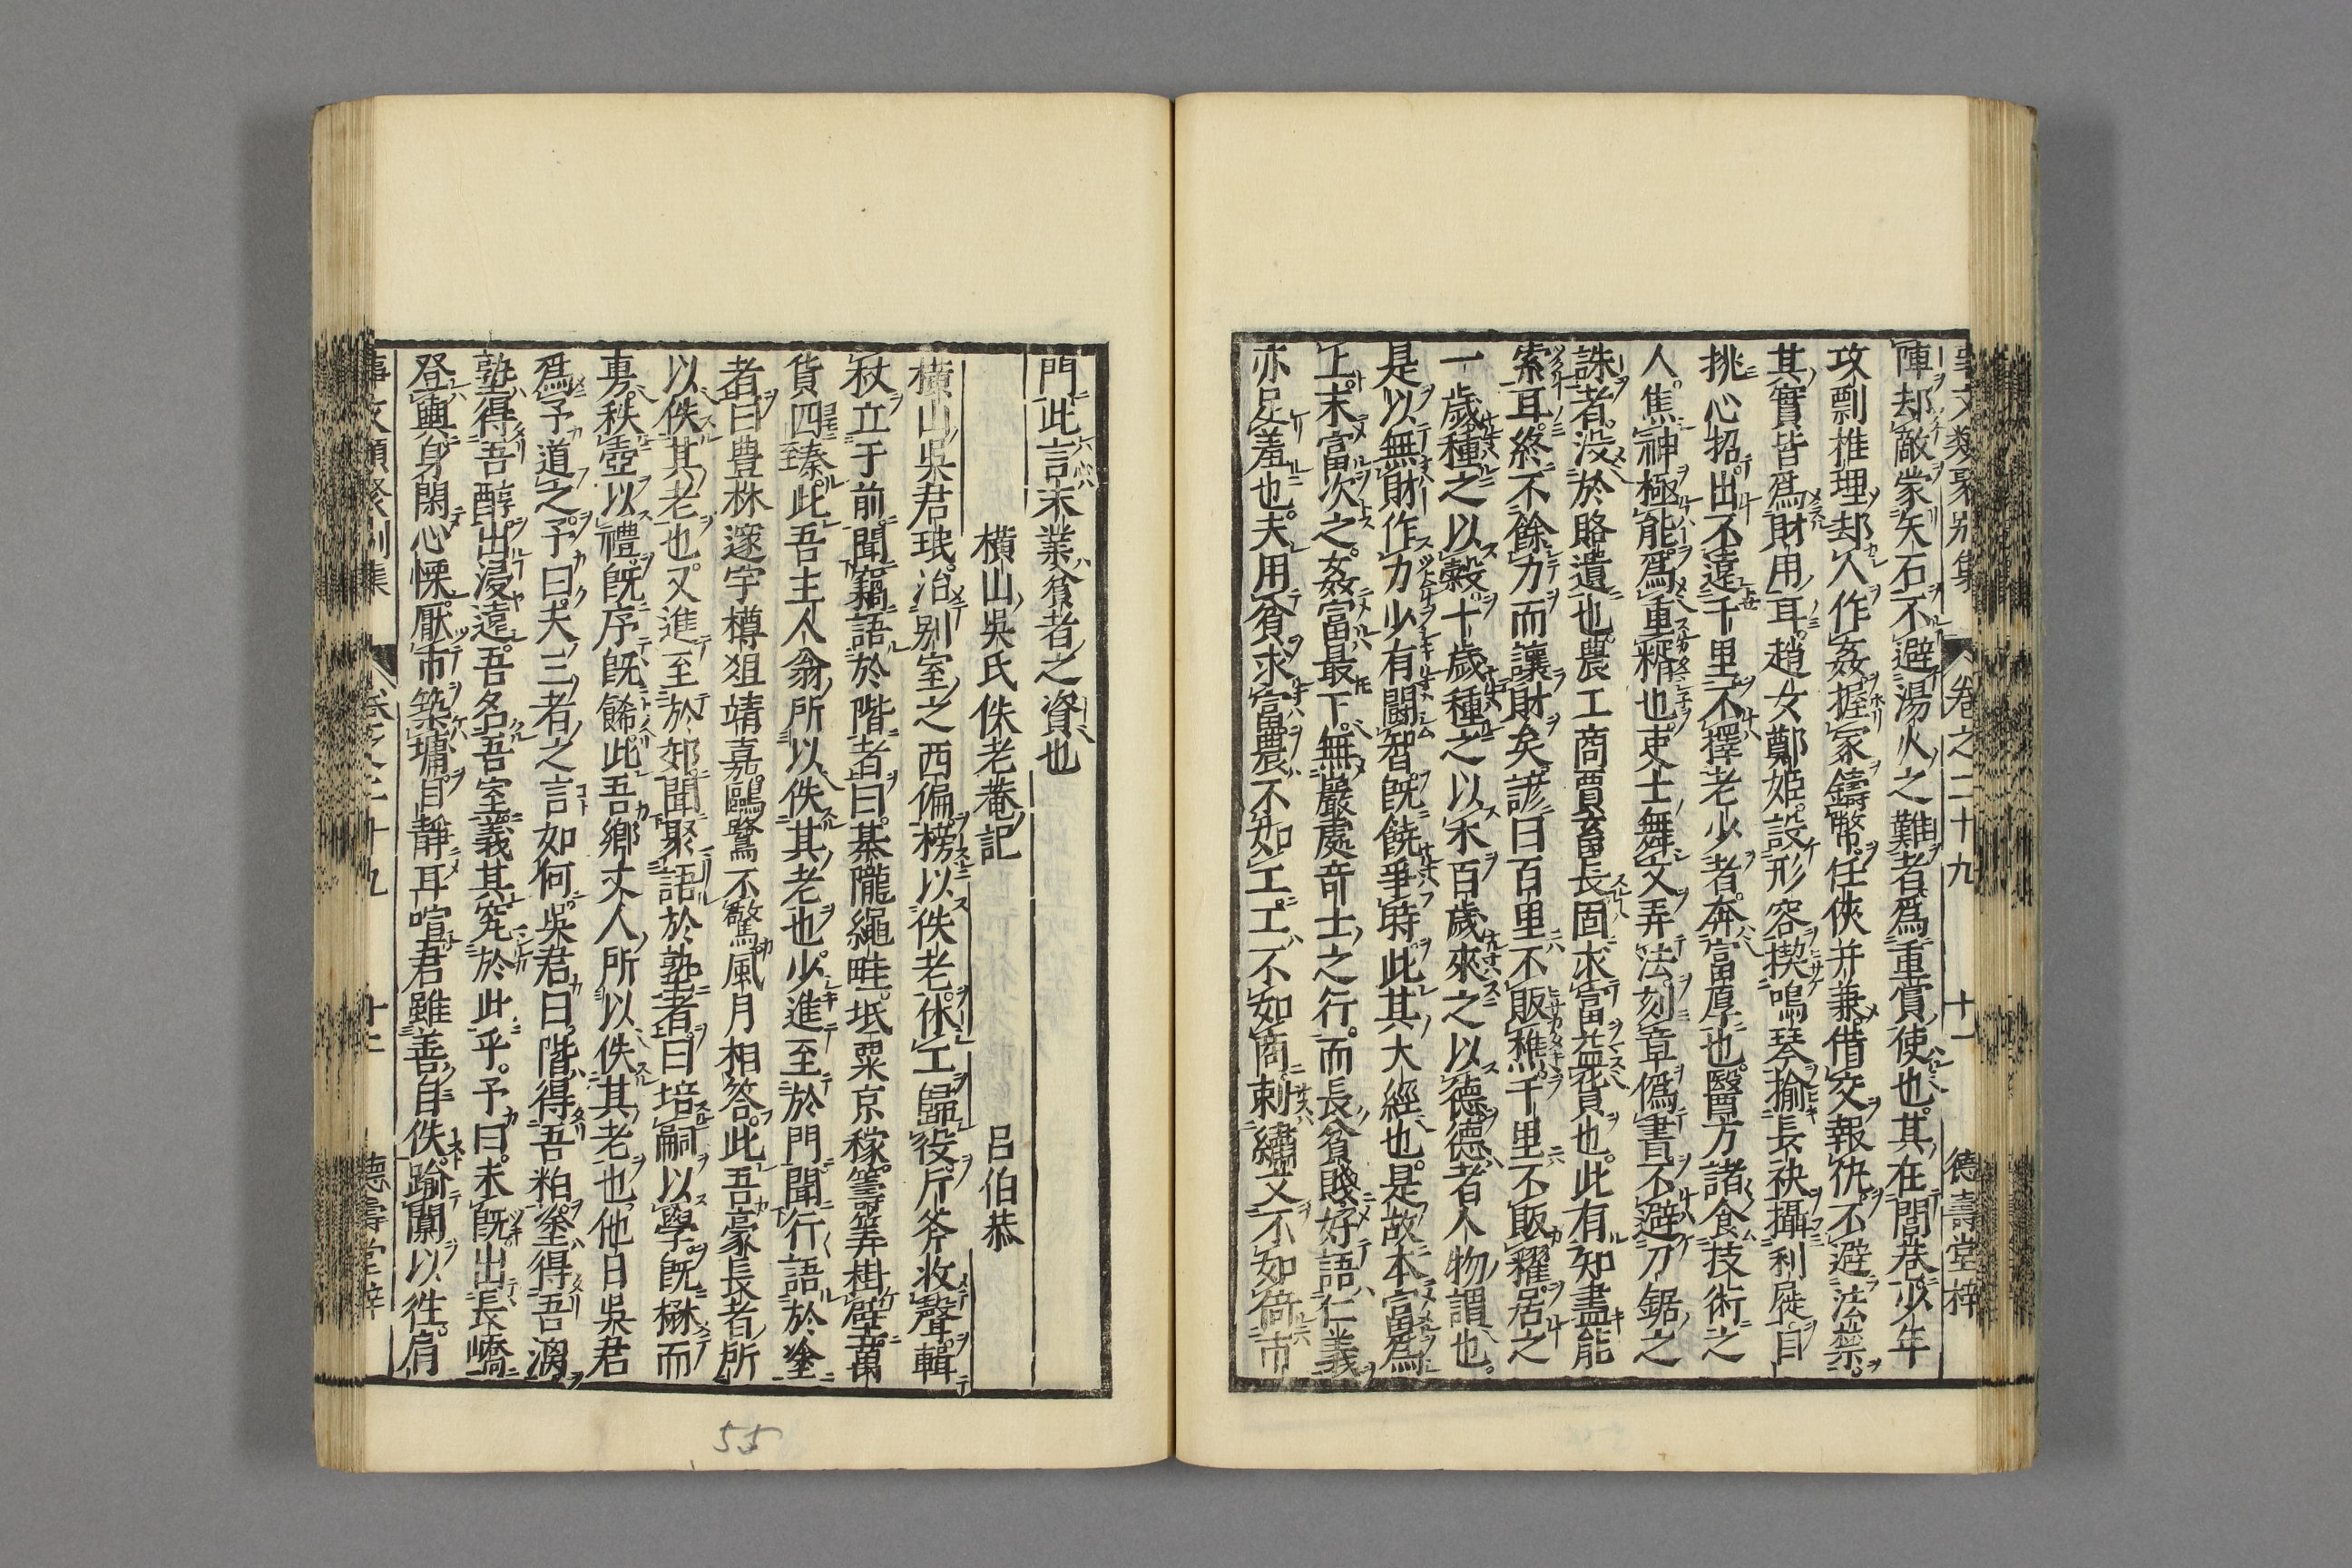 事文類聚别集 卷之二十九 十一 德壽堂梓
陣却敵蒙矢石不避湯火之難者爲重賞使也其在閭巷少年
攻剽椎理刼人作姦握家鑄幣任俠并兼借交報仇不避法禁
其實皆爲財用耳趙女鄭姬設形容揳鳴琴揄長袂攝利屣目
挑心招出不遠千里不擇老少者奔富厚也醫方諸食技術之
人焦神極能爲重糈也吏士舞文弄法刻章僞書不避刀鋸之
誅者没於賂遺也農工商賈畜長固求富益貨也此有知盡能
索耳終不餘力而讓財矣諺曰百里不販樵千里不販糴居之
一歲種之以榖十歲種之以木百歲來之以德德者人物謂也
是以無財作力少有鬭智旣饒爭時此其大經也是故本富爲
上末富次之姦富最下無巖處奇士之行而長貧賤好語仁義
亦足羞也夫用貧求富農不如工工不如商刺繡文不如倚市
門此言末業貧者之資也
橫山吳氏佚老菴記 呂伯恭
橫山吳君珉治别室之西偏榜以佚老休工歸役斤斧收聲輯
杖立于前聞竊語於階者曰基隴繩畦坻粟京稼籌筭掛壁萬
貨四臻此吾主人翁所以佚其老也少進至於門聞行語於塗
者曰豊林邃宇樽俎靖嘉鷗鷺不驚風月相答此吾豪長者所
以佚其老也又進至於郊聞聚語於塾者曰培嗣以學旣楙而
旉秩壺以禮旣序旣餙此吾鄉丈人所以佚其老也他日吳君
爲予道之予曰夫三者之言如何吳君曰階得吾粕塗得吾漓
塾得吾醇出浸遠吾名吾室義其究於此乎予曰未旣出長嶠
登輿身閑心慄厭市築墉目靜耳喧君雖善自佚踰闑以徃肩
事文類聚别集 卷之二十九 十二 德壽堂梓
55